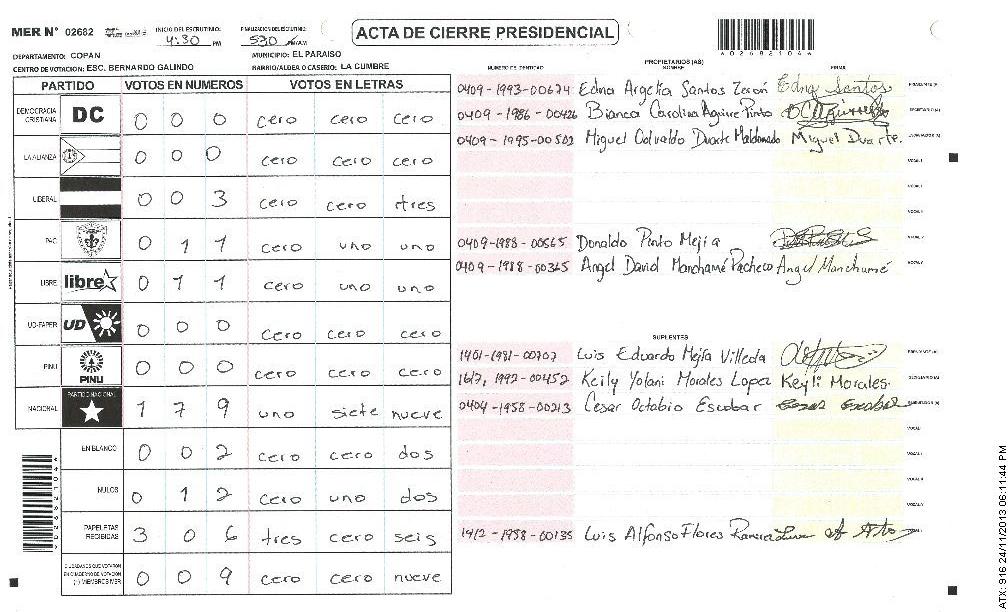 MER N° 02682 INICIO DEL ESCRUTINIO: 4:30 PM FINALIZACION DEL ESCRUTINIO: 530 PM/AM
ACTA DE CIERRE PRESIDENCIAL
DEPARTAMENTO: COPAN MUNICIPIO: EL PARAISO
CENTRO DE VOTACION: ESC. BERNARDO GALINDO BARRIO/ALDEA O CASERIO: LA CUMBRE
PARTIDO VOTOS EN NUMEROS VOTOS EN LETRAS
DEMOCRACIA CRISTIANA DC 0 0 0 cero cero cero
LA ALIANZA 0 0 0 cero cero cero
LIBERAL 0 0 3 cero cero tres
PAC 0 1 1 cero uno uno
LIBRE libre 0 1 1 cero uno uno
UD-FAPER UD 0 0 0 cero cero cero
PINU PINU 0 0 0 cero cero cero
NACIONAL PARTIDO NACIONAL 1 7 9 uno siete nueve
EN BLANCO 0 0 2 cero cero dos
NULOS 0 1 2 cero uno dos
PAPELETAS RECIBIDAS 3 0 6 tres cero seis
CIUDADANOS QUE VOTARON EN CUADERNO DE VOTACION (+) MIEMBROS MER 0 0 9 cero cero nueve
PROPIETARIOS (AS)
NUMERO IDENTIDAD NOMBRE FIRMA
0409-1993-00674 Edna Argelia Santos Edna Santos
0409-1986-00426 Bianca Carolina Aguirre Pinto
0409-1995-00502 Miguel Osvaldo Duarte Maldonado Miguel Duarte.
0409-1988-00565 Donaldo Pinto Mejia
0409-1988-00365 Angel David Manchamé Pacheco Angel Manchamé
SUPLENTES
1401-1981-00707 Luis Eduardo Mejía Villeda
1992-00452 Keily Yolani Morales Lopez Keyli Morales.
0404-1958-00213 Cesar Octabio Escobar Cesar Escobar
1412-1958-00135 Luis Alfonso Flores
ATX: 916 24/11/2013 06:11:44 PM